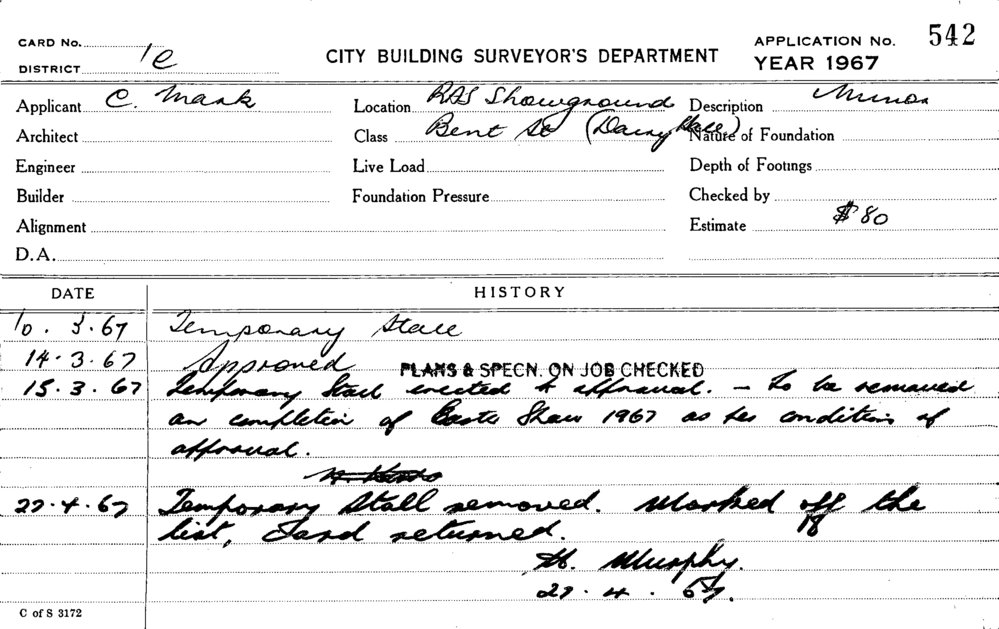 CARD No.
DISTRICT 1e
CITY BUILDING SURVEYOR'S DEPARTMENT
APPLICATION No. 542
YEAR 1967
Applicant C. Mark
Location RAS Showground
Description Minor
Architect
Class Bent St (Dairy Hall)
Nature of Foundation
Engineer
Live Load
Depth of Footings
Builder
Foundation Pressure
Checked by
Alignment
Estimate $80
D.A.
DATE
HISTORY
10.3.67 Temporary Stall
14.3.67 Approved PLANS & SPECN. ON JOB CHECKED
15.3.67 Temporary Stall erected to approval. - To be removed
on completion of Easter Show 1967 as per conditions of
approval.
27.4.67 Temporary Stall removed. Marked off the
list, Card returned.
Murphy.
27.4.67.
C of S 3172